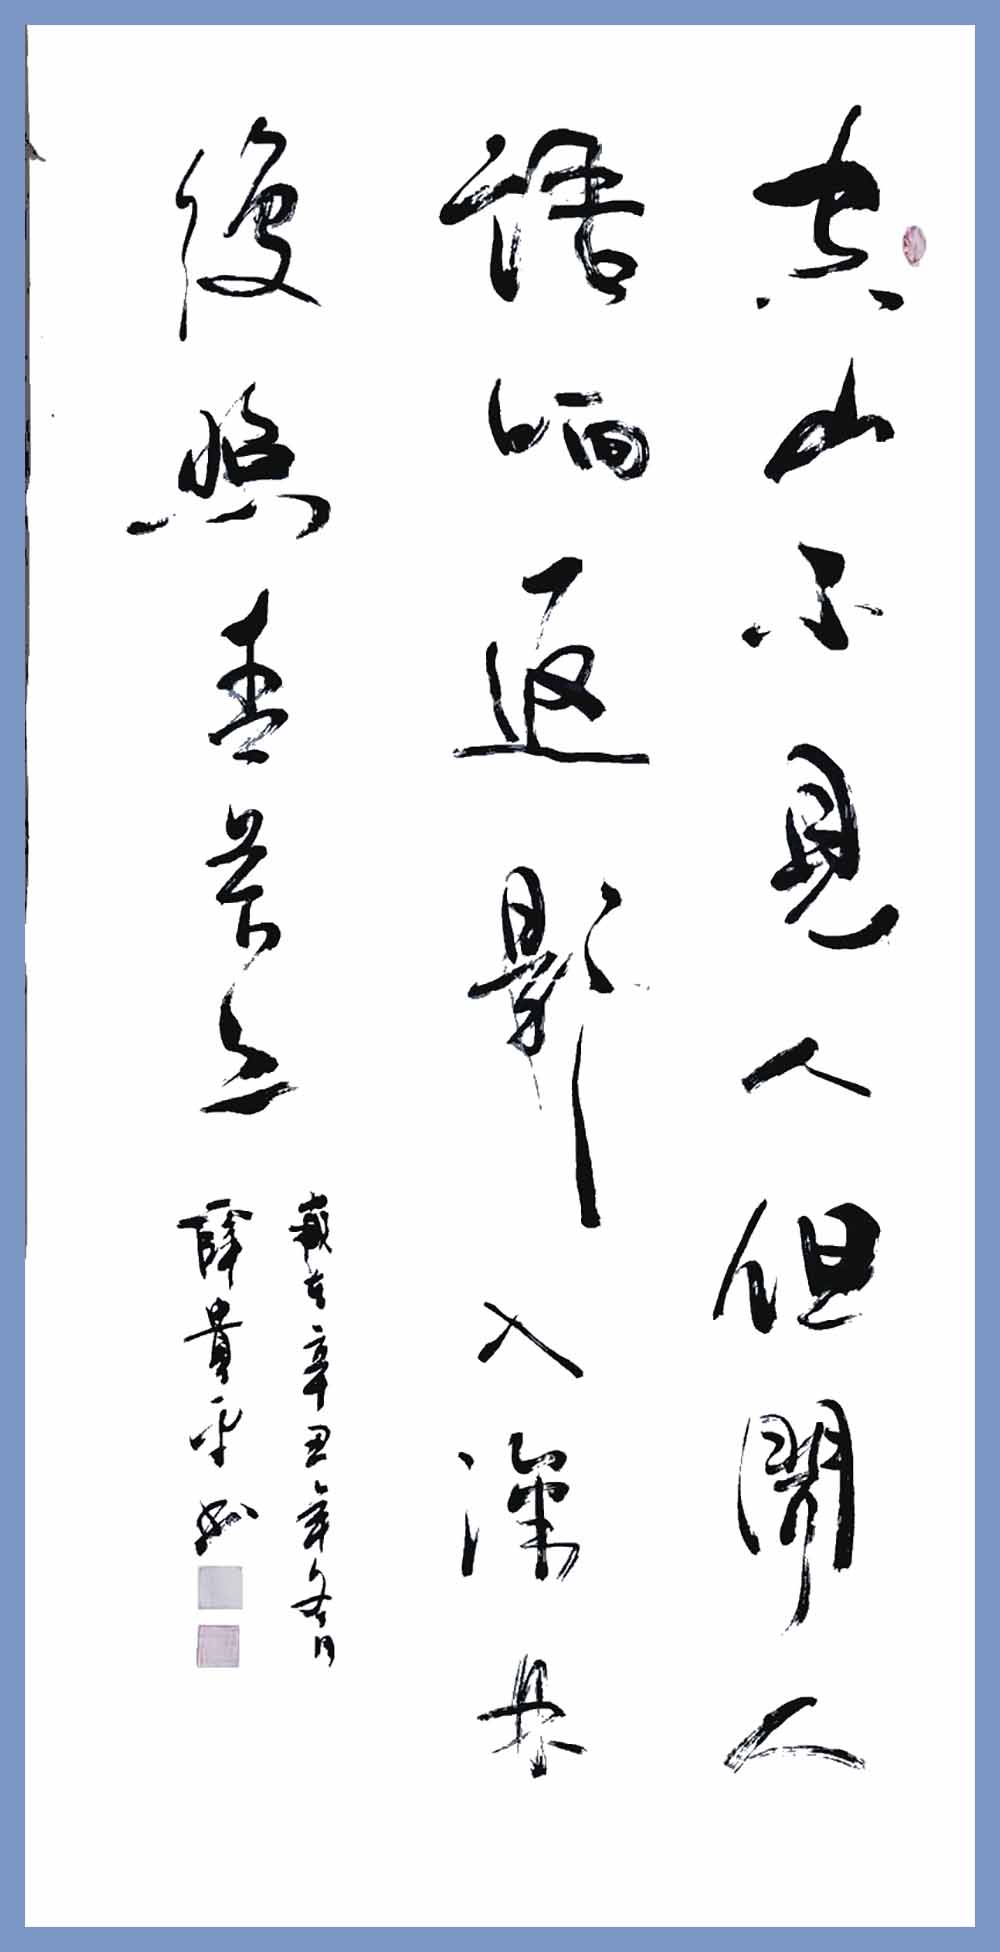 空山不見人但聞人
語响返影入深林
復照青苔上
歲在辛丑年冬月
薛貴平书